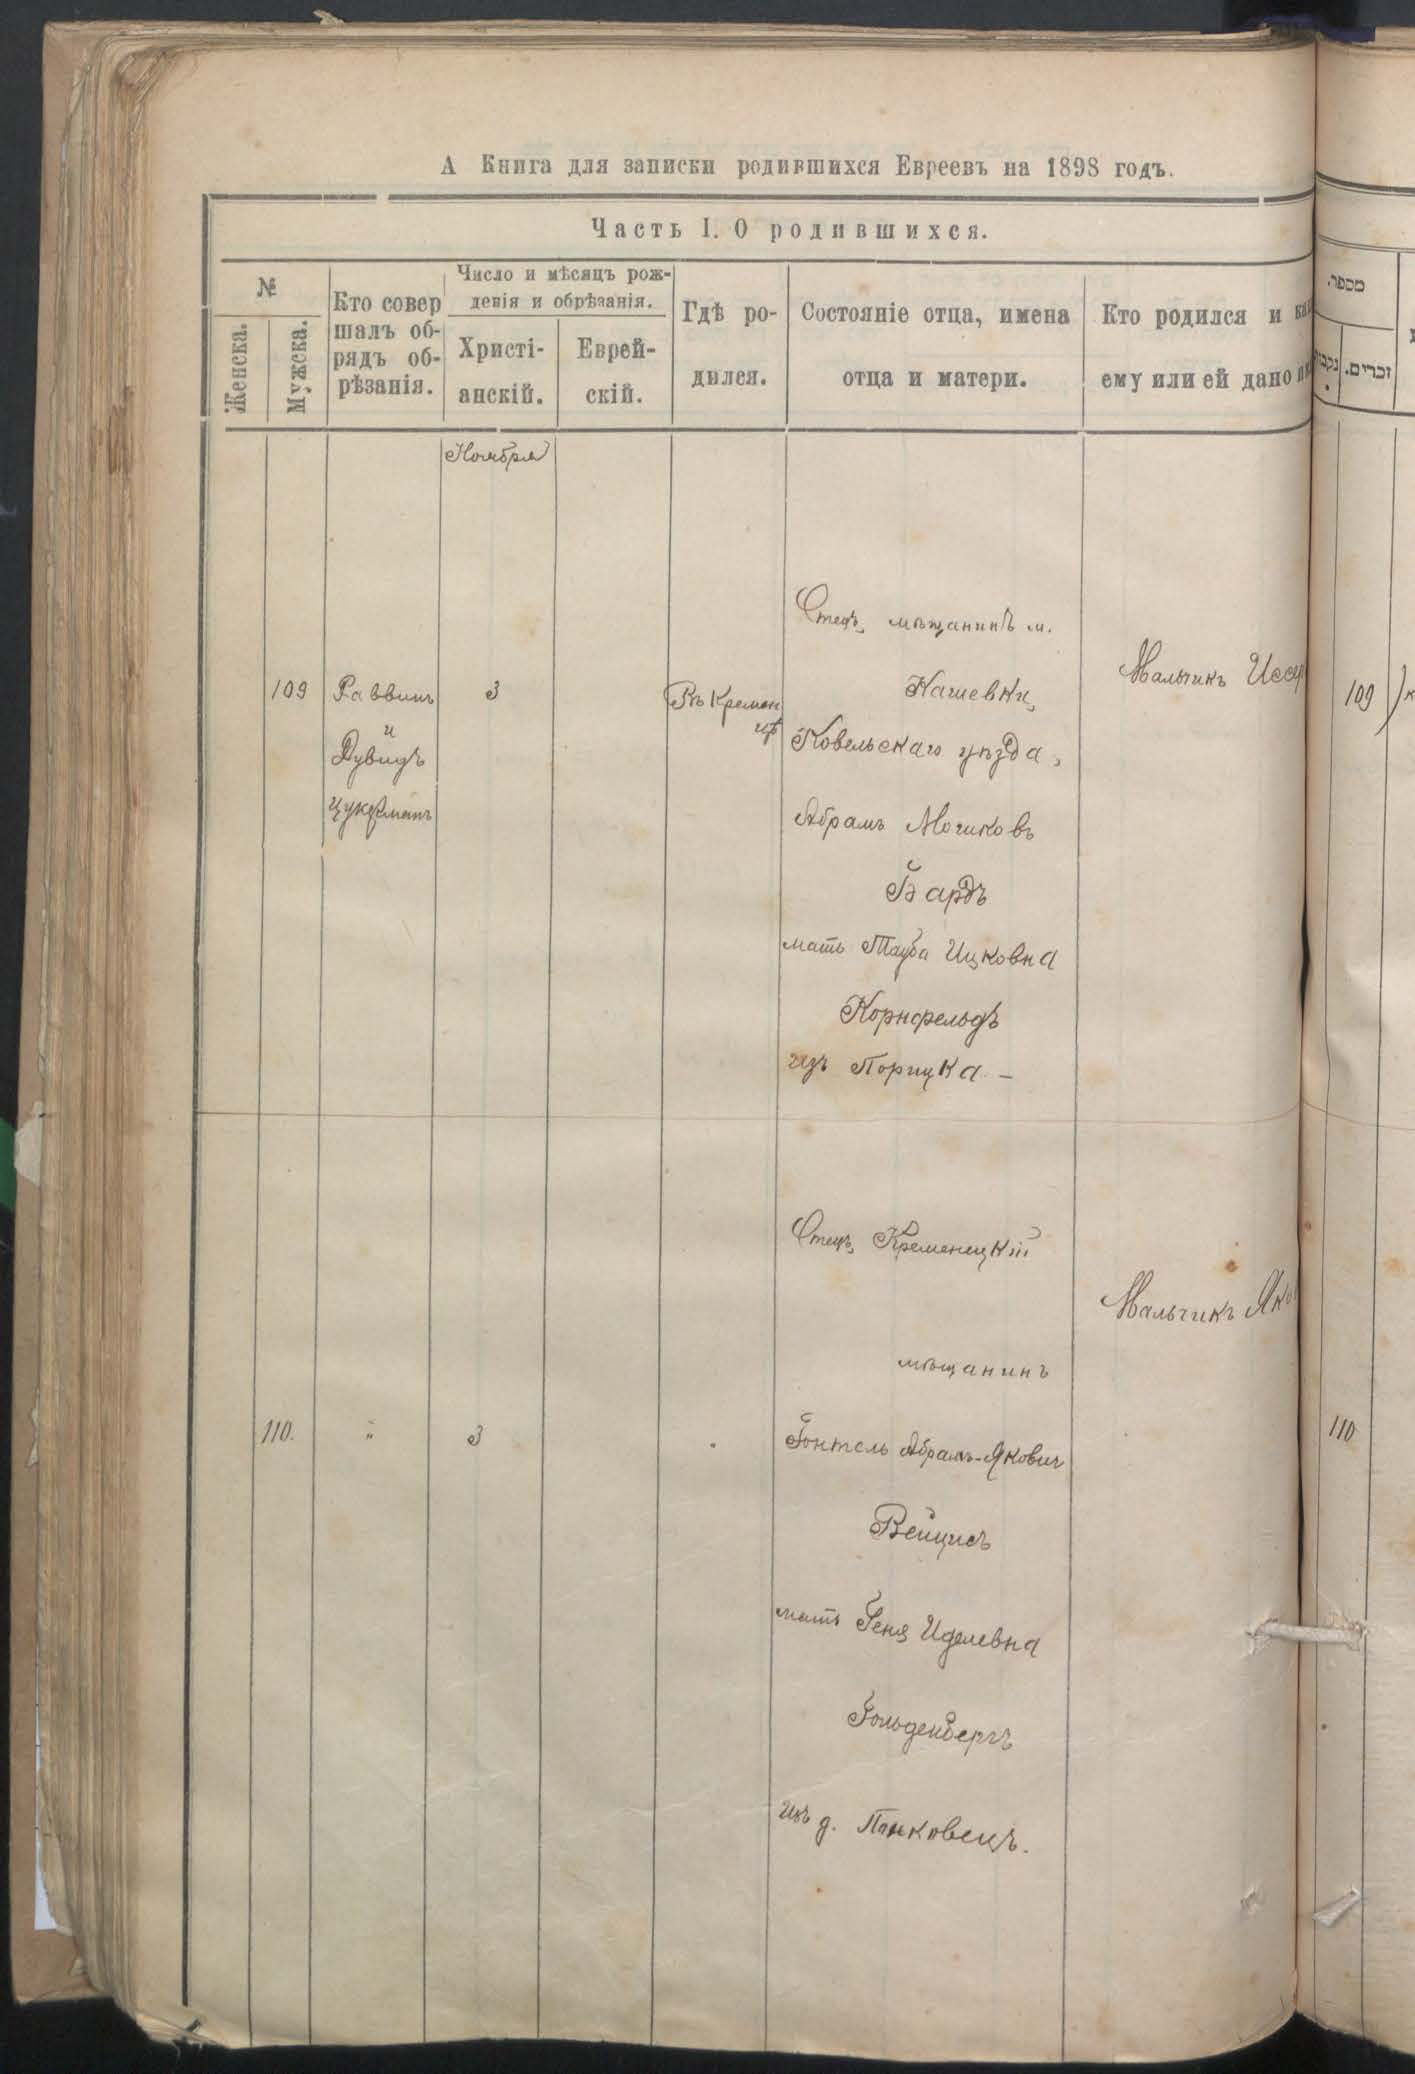 А Книга для записки родившихся Евреевъ на 1898 годъ.
Часть I. О родившихся.
№
Женска.
Мужска.
Кто совер
шалъ об-
рядъ об-
рѣзанія.
Число и мѣсяцъ рож-
денія и обрѣзанія.
Христі-
анскій.
Еврей-
скій.
Гдѣ ро-
дился.
Состояніе отца, имена
отца и матери.
Кто родился и
ему или ей дано
מספר.
זכרים.
Ноября
109
Раввинъ
и
Дувидъ
Цукерманъ
3
Въ Кремен
цѣ
Отецъ, мѣщанинъ м.
Кашевки,
Ковельскаго уѣзда,
Абрамъ Мошковъ
Бардъ
мать Тауба Ицковна
Корнфельдъ
изъ Порицка —
Мальчикъ
109
110.
"
3
Отецъ, Кременецкій
мѣщанинъ
Абрамъ-Якович
Вейцисъ
мать Геня Иделевна
Гольденбергъ
изъ д.
Мальчикъ
110